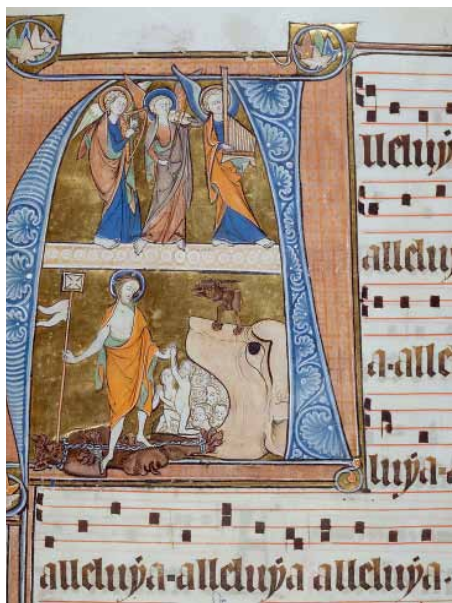 Alleluÿ
alleluÿ
a-alle
luÿa-a
alleluÿa-alleluÿa alleluÿa-